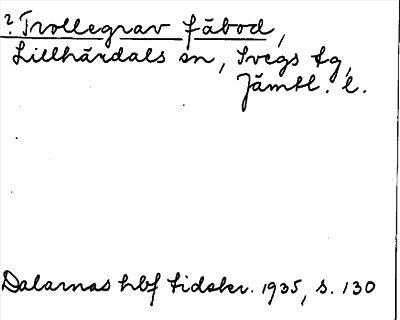 ? Trollegrav fäbod,
Lillhärdals sn, Svegs tg,
Jämtl. l.
Dalarnas hbf tidskr. 1935, s. 130